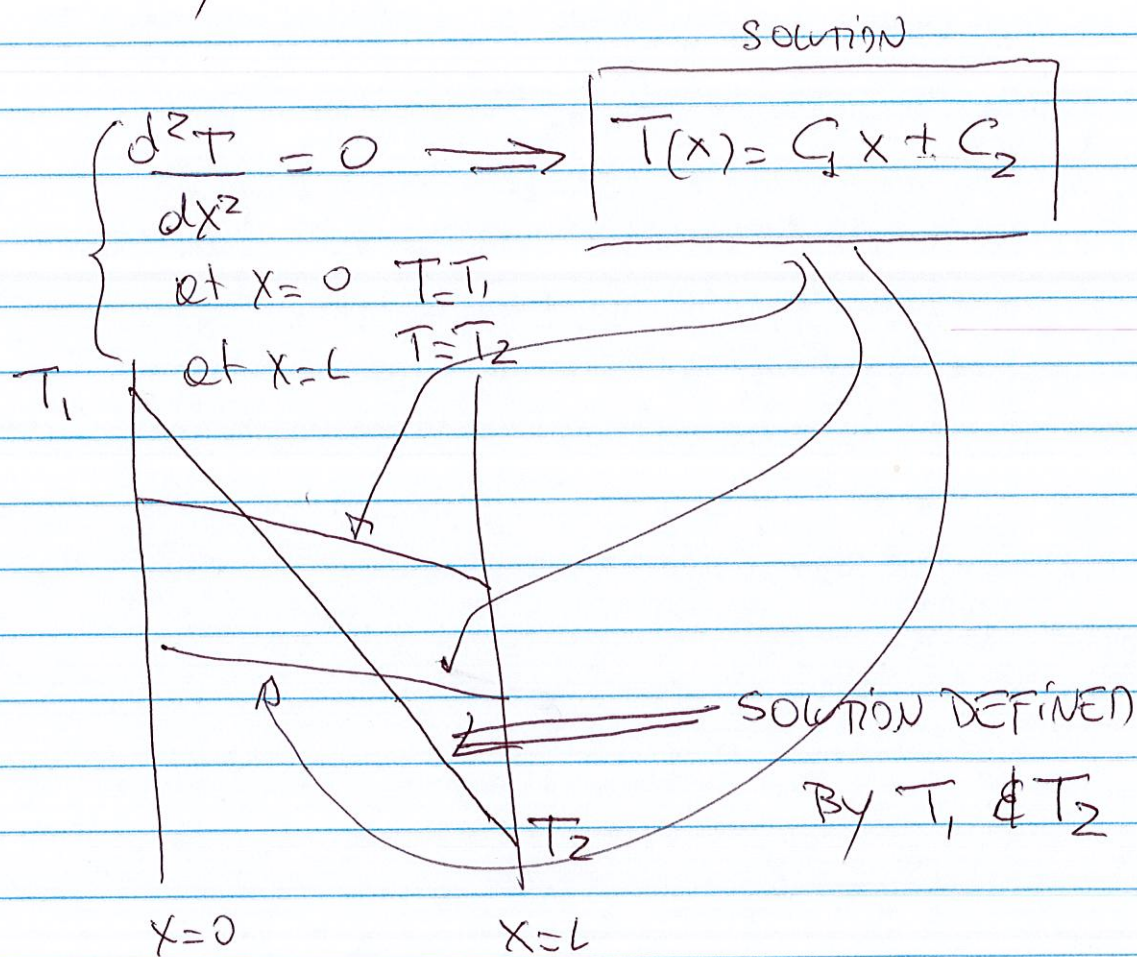 SOLUTION
d²T/dx² = 0 ⟹ T(x) = C₁ x + C₂
at x = 0 T = T₁
at x = L T = T₂
T₁
SOLUTION DEFINED
By T₁ & T₂
T₂
x = 0 x = L